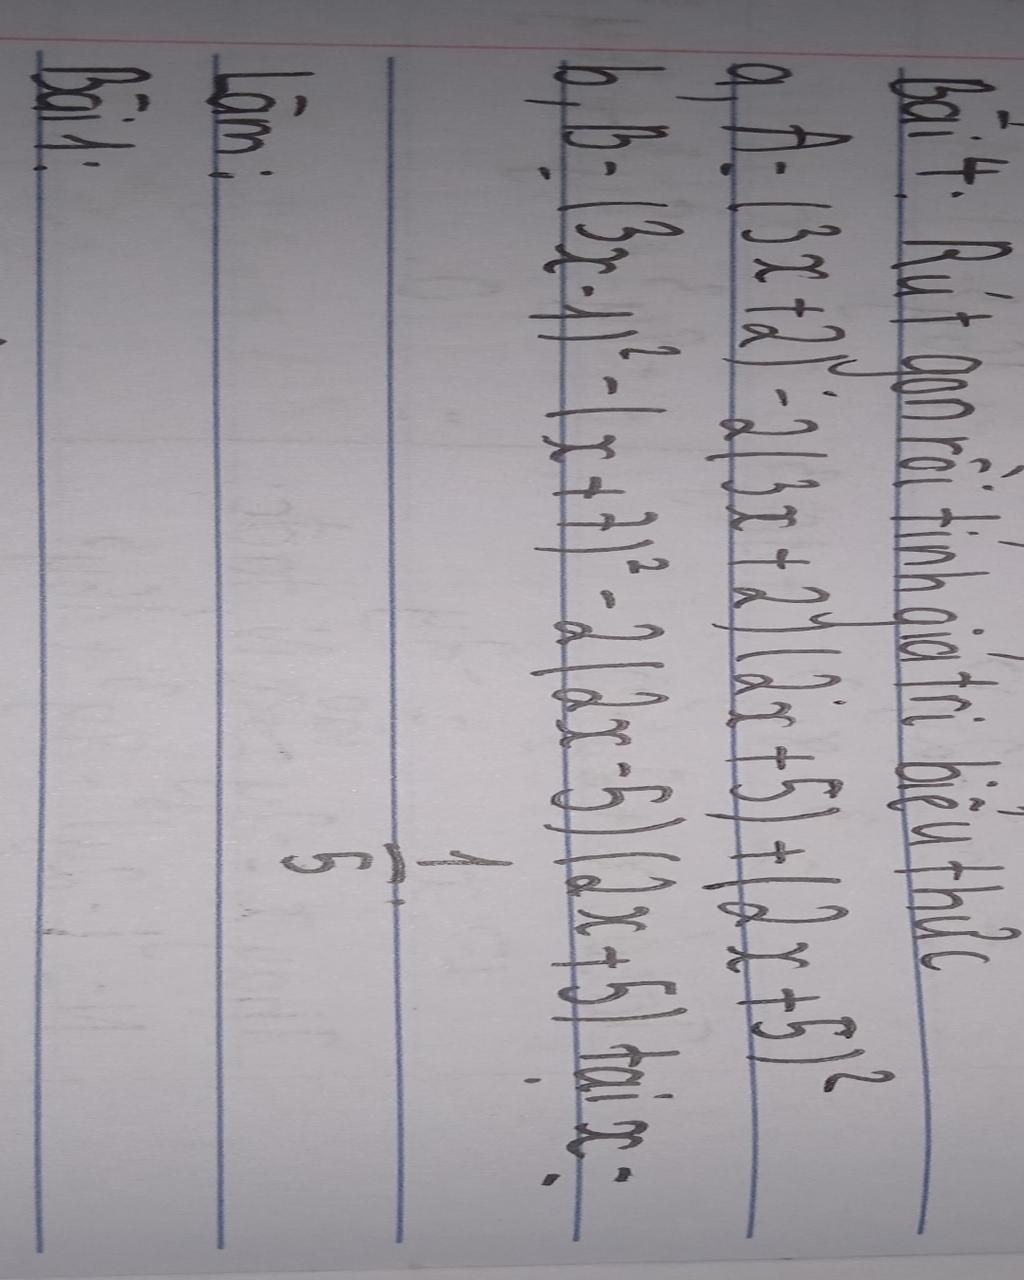 Bài 4. Rút gọn rồi tính giá trị biểu thức
a, A = (3x+2) - 2(3x+2)(2x+5) + (2x+5)²
b, B = (3x-1)² - (x+7)² - 2(2x-5)(2x+5) tại x =
1
5
Làm:
Bài 1: